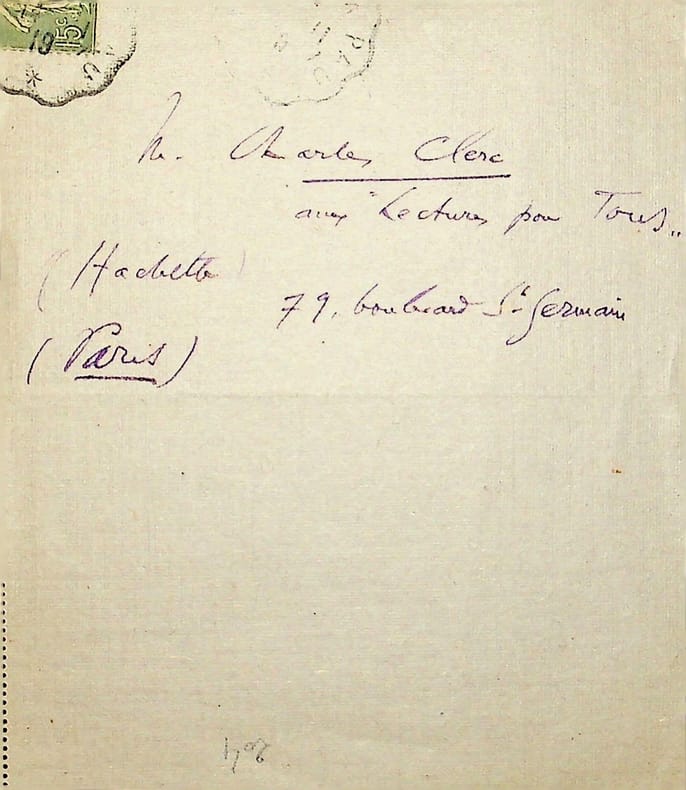 15c
19
PAU
PAU
M. Charles Clerc
aux "Lectures pour Tous"
(Hachette)
79, boulevard St Germain
(Paris)